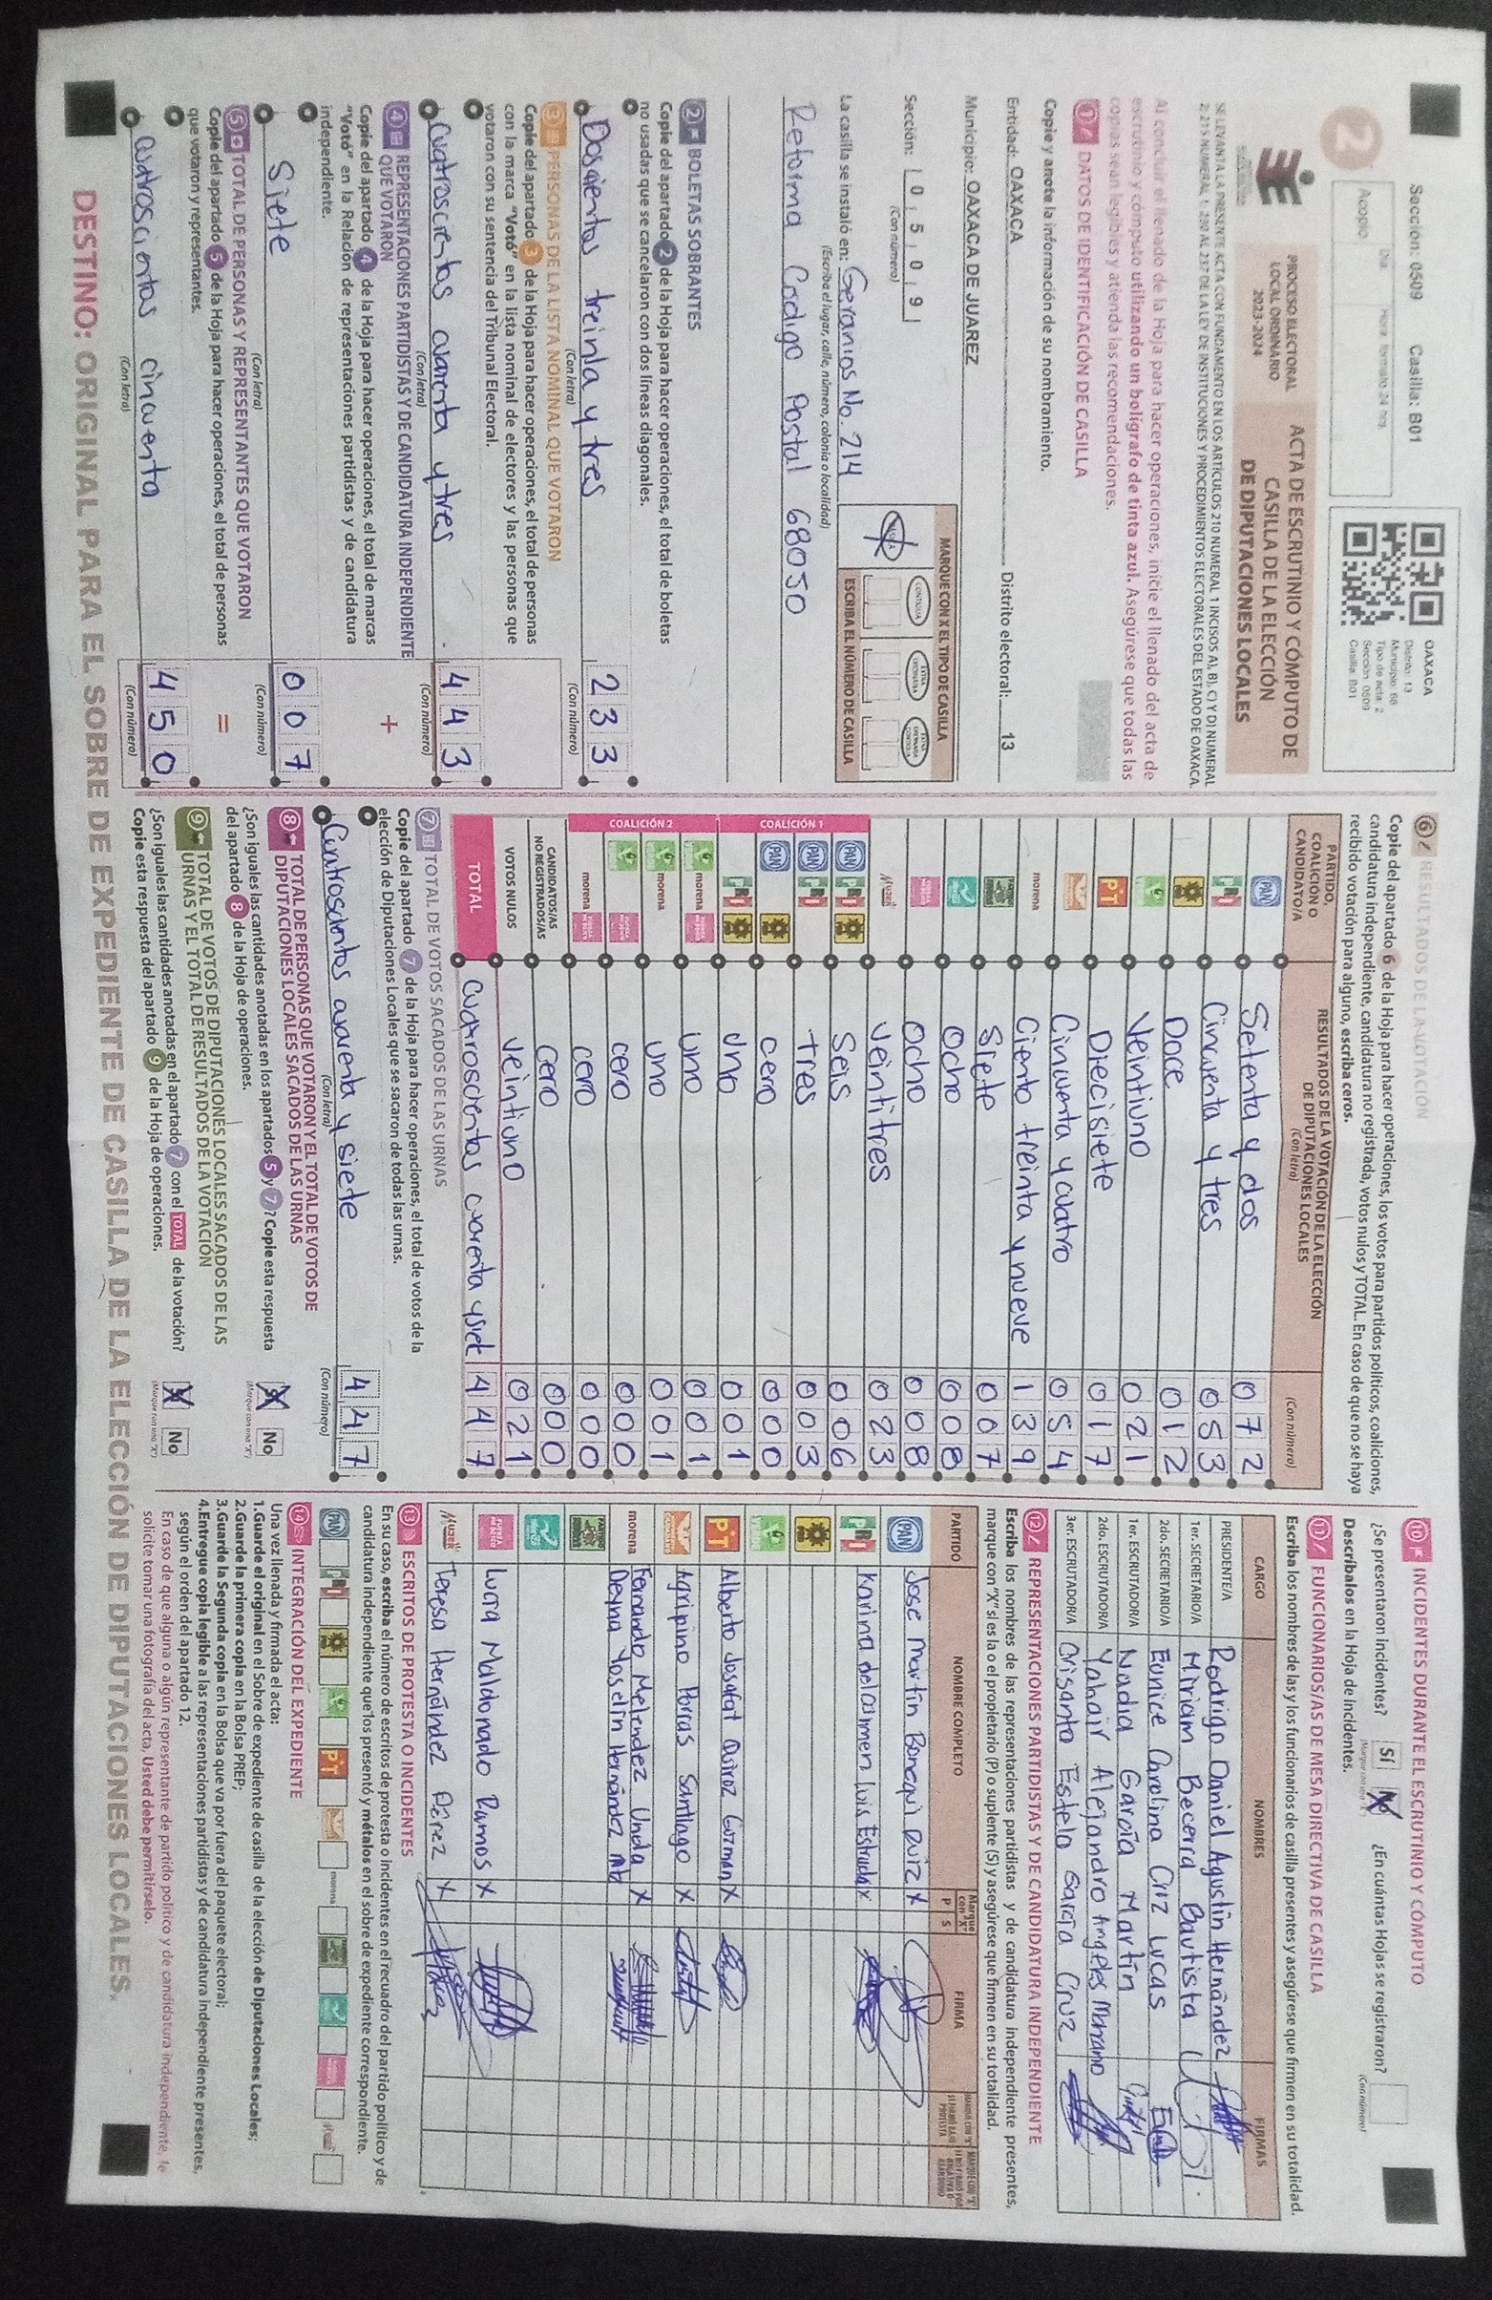 Sección: 0509 Casilla: B01
OAXACA
Distrito: 13
Municipio: 66
Tipo de acta: 2
Sección: 0509
Casilla: B01
2
Acopio
Día: Hora: formato 24 hrs.
PROCESO ELECTORAL
LOCAL ORDINARIO
2023-2024
ACTA DE ESCRUTINIO Y CÓMPUTO DE
CASILLA DE LA ELECCIÓN
DE DIPUTACIONES LOCALES
SE LEVANTA LA PRESENTE ACTA CON FUNDAMENTO EN LOS ARTÍCULOS 210 NUMERAL 1 INCISOS A), B), C) Y D) NUMERAL
2; 215 NUMERAL 1; 230 AL 237 DE LA LEY DE INSTITUCIONES Y PROCEDIMIENTOS ELECTORALES DEL ESTADO DE OAXACA.
Al concluir el llenado de la Hoja para hacer operaciones, inicie el llenado del acta de
escrutinio y cómputo utilizando un bolígrafo de tinta azul. Asegúrese que todas las
copias sean legibles y atienda las recomendaciones.
1 DATOS DE IDENTIFICACIÓN DE CASILLA
Copie y anote la información de su nombramiento.
Entidad: OAXACA Distrito electoral: 13
Municipio: OAXACA DE JUAREZ
Sección: 0 5 0 9
(Con número)
MARQUE CON X EL TIPO DE CASILLA
ESCRIBA EL NÚMERO DE CASILLA
La casilla se instaló en: Geranios No. 214
(Escriba el lugar, calle, número, colonia o localidad)
Reforma Codigo Postal 68050
2 BOLETAS SOBRANTES
Copie del apartado 2 de la Hoja para hacer operaciones, el total de boletas
no usadas que se cancelaron con dos líneas diagonales.
Dosientos treinta y tres 2 3 3
(Con letra) (Con número)
3 PERSONAS DE LA LISTA NOMINAL QUE VOTARON
Copie del apartado 3 de la Hoja para hacer operaciones, el total de personas
con la marca "Votó" en la lista nominal de electores y las personas que
votaron con su sentencia del Tribunal Electoral.
Cuatroscientos cuarenta y tres 4 4 3
(Con letra) (Con número)
4 REPRESENTACIONES PARTIDISTAS Y DE CANDIDATURA INDEPENDIENTE
QUE VOTARON
+
Copie del apartado 4 de la Hoja para hacer operaciones, el total de marcas
"Votó" en la Relación de representaciones partidistas y de candidatura
independiente.
Siete 0 0 7
(Con letra) (Con número)
5 TOTAL DE PERSONAS Y REPRESENTANTES QUE VOTARON
=
Copie del apartado 5 de la Hoja para hacer operaciones, el total de personas
que votaron y representantes.
cuatroscientos cincuenta 4 5 0
(Con letra) (Con número)
6 RESULTADOS DE LA VOTACIÓN
Copie del apartado 6 de la Hoja para hacer operaciones, los votos para partidos políticos, coaliciones,
candidatura independiente, candidatura no registrada, votos nulos y TOTAL. En caso de que no se haya
recibido votación para alguno, escriba ceros.
PARTIDO,
COALICIÓN O
CANDIDATO/A
RESULTADOS DE LA VOTACIÓN DE LA ELECCIÓN
DE DIPUTACIONES LOCALES
(Con letra)
(Con número)
PAN Setenta y dos 0 7 2
PRI Cincuenta y tres 0 5 3
Doce 0 1 2
Veintiuno 0 2 1
PT Diecisiete 0 1 7
Cincuenta y cuatro 0 5 4
morena Ciento treinta y nueve 1 3 9
Siete 0 0 7
Ocho 0 0 8
Ocho 0 0 8
Veintitres 0 2 3
COALICIÓN 1
PAN PRI Seis 0 0 6
PAN PRI tres 0 0 3
PAN cero 0 0 0
PRI uno 0 0 1
COALICIÓN 2
morena uno 0 0 1
morena uno 0 0 1
cero 0 0 0
morena cero 0 0 0
CANDIDATOS/AS
NO REGISTRADOS/AS cero 0 0 0
VOTOS NULOS veintiuno 0 2 1
TOTAL cuatroscientos cuarenta y siet 4 4 7
7 TOTAL DE VOTOS SACADOS DE LAS URNAS
Copie del apartado 7 de la Hoja para hacer operaciones, el total de votos de la
elección de Diputaciones Locales que se sacaron de todas las urnas.
Cuatroscientos cuarenta y siete 4 4 7
(Con letra) (Con número)
8 TOTAL DE PERSONAS QUE VOTARON Y EL TOTAL DE VOTOS DE
DIPUTACIONES LOCALES SACADOS DE LAS URNAS
¿Son iguales las cantidades anotadas en los apartados 5 y 7? Copie esta respuesta
del apartado 8 de la Hoja de operaciones.
Sí No
(Marque con una "X")
9 TOTAL DE VOTOS DE DIPUTACIONES LOCALES SACADOS DE LAS
URNAS Y EL TOTAL DE RESULTADOS DE LA VOTACIÓN
¿Son iguales las cantidades anotadas en el apartado 7 con el TOTAL de la votación?
Copie esta respuesta del apartado 9 de la Hoja de operaciones.
Sí No
(Marque con una "X")
10 INCIDENTES DURANTE EL ESCRUTINIO Y CÓMPUTO
¿Se presentaron incidentes? Sí No ¿En cuántas Hojas se registraron?
(Marque con una "X") (Con número)
Descríbalos en la Hoja de incidentes.
11 FUNCIONARIOS/AS DE MESA DIRECTIVA DE CASILLA
Escriba los nombres de las y los funcionarios de casilla presentes y asegúrese que firmen en su totalidad.
CARGO NOMBRES FIRMAS
PRESIDENTE/A Rodrigo Daniel Agustin Hernández
1er. SECRETARIO/A Miriam Becerra Bautista
2do. SECRETARIO/A Eunice Carolina Cruz Lucas
1er. ESCRUTADOR/A Nadia García Martín
2do. ESCRUTADOR/A Yahair Alejandro Angeles Manzano
3er. ESCRUTADOR/A Crisanto Estela García Cruz
12 REPRESENTACIONES PARTIDISTAS Y DE CANDIDATURA INDEPENDIENTE
Escriba los nombres de las representaciones partidistas y de candidatura independiente presentes,
marque con "X" si es la o el propietario (P) o suplente (S) y asegúrese que firmen en su totalidad.
PARTIDO NOMBRE COMPLETO Marque con "X" P S FIRMA
PAN Jose Martín Bonequi Ruiz X
PRI Karina del Carmen Luis Estrada X
PT Alberto Josafat Quiroz Guzman X
Agripino Porras Santiago X
morena Fernando Melendez Unda X
Deyna Yoselin Hernández
Lucra Maldonado Ramos X
Teresa Hernández Pérez X
13 ESCRITOS DE PROTESTA O INCIDENTES
En su caso, escriba el número de escritos de protesta o incidentes en el recuadro del partido político y de
candidatura independiente que los presentó y métalos en el sobre de expediente correspondiente.
PAN PRI PT morena
14 INTEGRACIÓN DEL EXPEDIENTE
Una vez llenada y firmada el acta:
1.Guarde el original en el Sobre de expediente de casilla de la elección de Diputaciones Locales;
2.Guarde la primera copia en la Bolsa PREP;
3.Guarde la Segunda copia en la Bolsa que va por fuera del paquete electoral;
4.Entregue copia legible a las representaciones partidistas y de candidatura independiente presentes,
según el orden del apartado 12.
En caso de que alguna o algún representante de partido político y de candidatura independiente, le
solicite tomar una fotografía del acta, Usted debe permitírselo.
DESTINO: ORIGINAL PARA EL SOBRE DE EXPEDIENTE DE CASILLA DE LA ELECCIÓN DE DIPUTACIONES LOCALES.